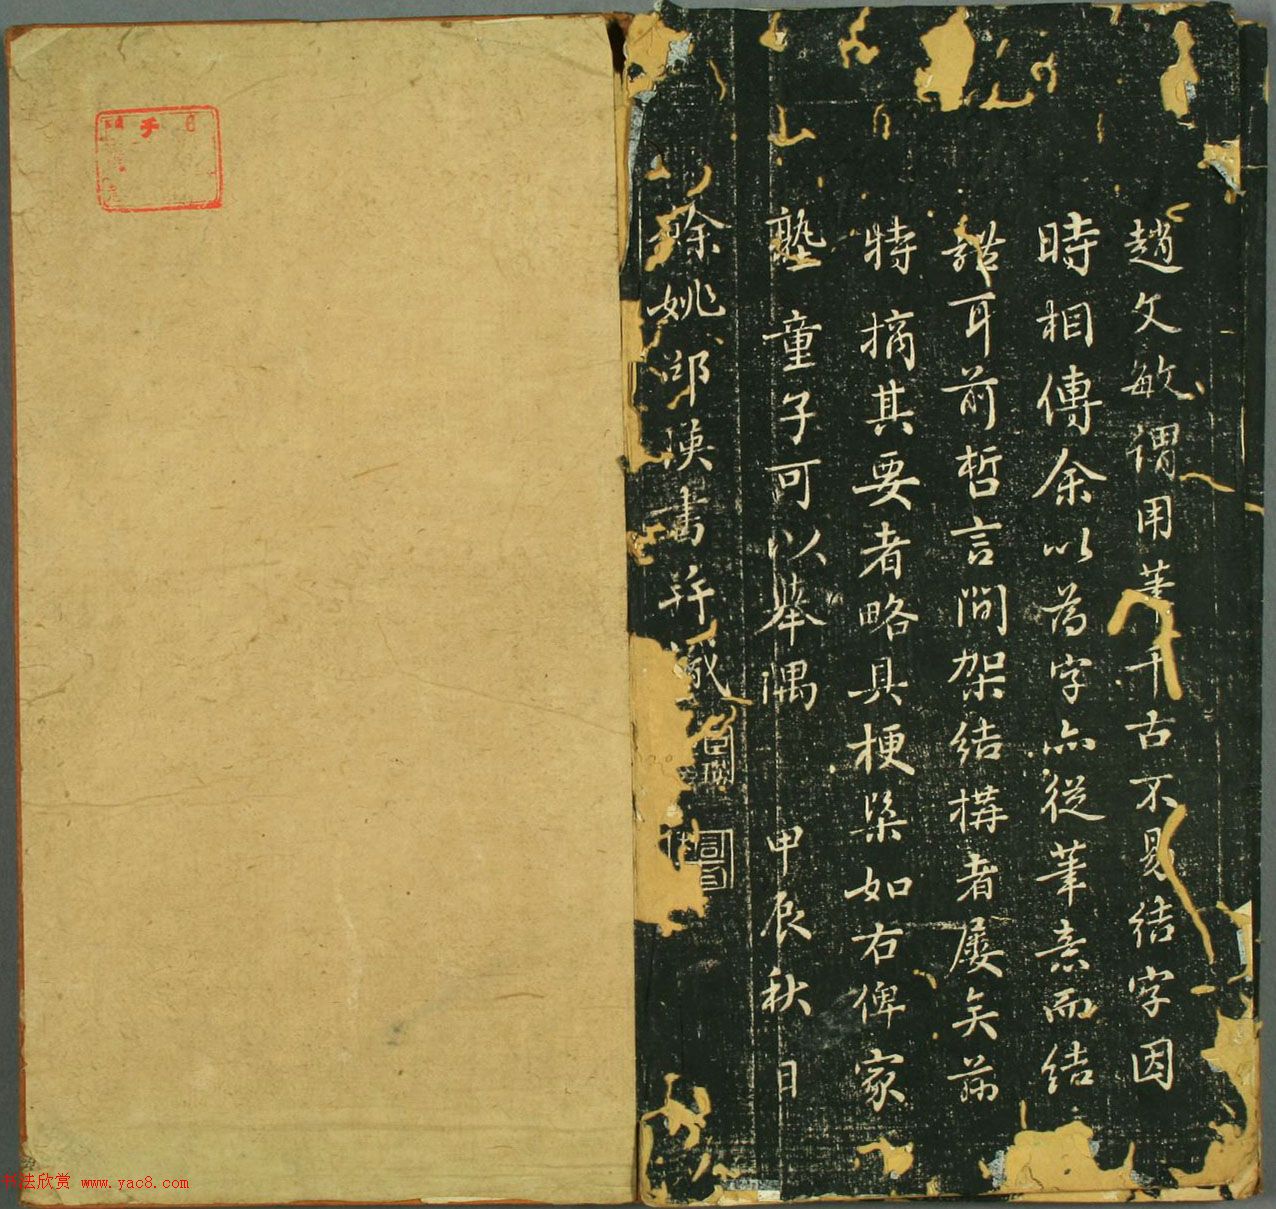 趙文敏謂用筆千古不易結字因
時相傳余以為字亦從筆意而結
耳前哲言間架結構者屡矣茲
特摘其要者略具梗槩如右俾家
塾童子可以舉隅 甲辰秋日
餘姚邵瑛書并識
千
书法欣赏 www.yac8.com